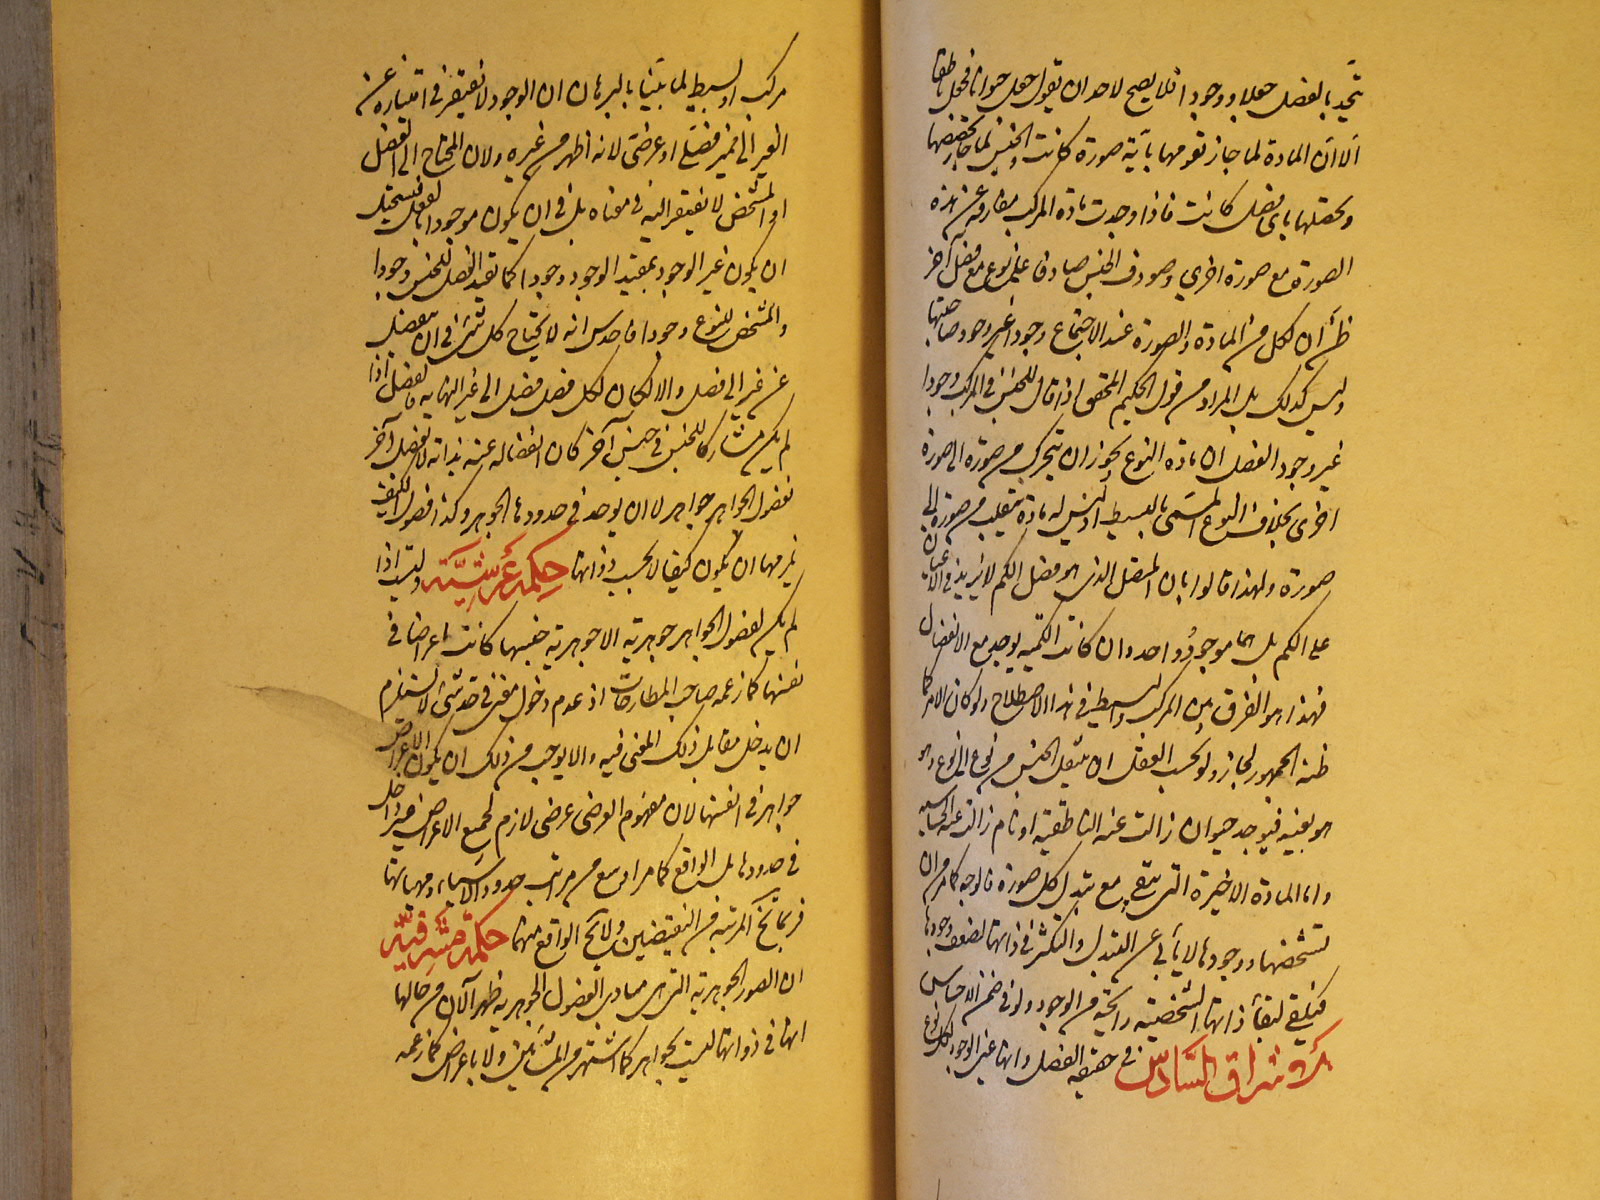 يتحد بالفصل جعلا و وجودا فلا يصح لاحد ان يقول جعل حيوانا فجعل ناطقا
الا ان المادة لما جاز تقومها باية صورة كانت والجنس لما جاز تخصصها
وتحصلها باى فصل كانت فاذا وجدت مادة المركب مفارقة عن هذه
الصورة مع صورة اخرى وصودف الجنس صادقا على نوع مع فصل آخر
ظن ان لكل من المادة والصورة عند الاجتماع وجودا غير وجود صاحبتها
وليس كذلك بل المراد من قول الحكيم المحقق اذا قال للجنس فى المركب وجودا
غير وجود الفصل ان مادة النوع يجوز ان تتحرك من صورة الى صورة
اخرى بخلاف النوع المسمى بالبسيط اذ ليس له مادة تنقلب من صورة الى
صورة ولهذا قالوا بان المنفصل الذى هو فصل الكم لا يزيد فى الاعيان
على الكم بل هما موجود واحد وان كانت الكمية يوجد مع الانفصال
فهذا هو الفرق بين المركب والبسيط فى هذا الاصطلاح ولو كان الامر كما
ظنه الجمهور لجاز ولو بحسب العقل ان ينتقل الجنس من نوع الى نوع وهو
هو بعينه فيوجد حيوان زالت عنه الناطقية او نام زالت عنه الحساسية
واما المادة الاخيرة التى تبقى مع تبدل كل صورة فالوجه كما مر ان
تشخصها و وجودها لا يأبى عن التبدل والتكثر فى ذاتها لضعف وجودها
فيكفى لبقاء ذاتها الشخصية رائحة من الوجود ولو فى ضمن الاجناس
الاشراق السادس فى حقيقة الفصل وانها عين الوجود لكل نوع
مركب او بسيط لما بينا بالبرهان ان الوجود لا يفتقر فى امتيازه عن
الغير الى مميز فصلى او عرضى لانه اظهر من غيره ولان المحتاج الى الفصل
او المشخص لا يفتقر اليه فى معناه بل فى ان يكون موجودا بالفعل فيستحيل
ان يكون غير الوجود يفيد الوجود وجودا كما يفيد الفصل للجنس وجودا
والمشخص للنوع وجودا فاحدس انه لا يحتاج كل شئ فى ان ينفصل
عن غيره الى فصل والا لكان لكل فصل فصل الى غير النهاية فالفصل اذا
لم يكن مشاركا للجنس فى جنس آخر كان انفصاله عنه بذاته لا بفصل آخر
ففصول الجواهر جواهر لا ان يوجد فى حدودها الجوهر وكذا فصول الكيف
يلزمها ان يكون كيفا لا بحسب ذواتها حكمة عرشية وليست اذا
لم يكن لفصول الجواهر جوهرية الا جوهرية جنسها كانت اعراضا فى
نفسها كما زعمه صاحب المطارحات اذ عدم دخول معنى فى حد شئ لا يستلزم
ان يدخل مقابل ذلك المعنى فيه والا يوجب من ذلك ان يكون الاعراض
جواهر فى انفسها لان مفهوم العرضى عرضى لازم لجميع الاعراض غير داخل
فى حدودها بل الواقع كما مر اوسع من مراتب حدود الاشياء ومهياتها
فربما يخ المرتبة عن النقيضين ولا يخ الواقع عنهما حكمة مشرقية
ان الصور الجوهرية التى هى مبادى الفصول الجوهرية ظهر الآن من حالها
انها فى ذواتها ليست بجواهر كما اشتهر من المشائين ولا باعراض كما زعمه